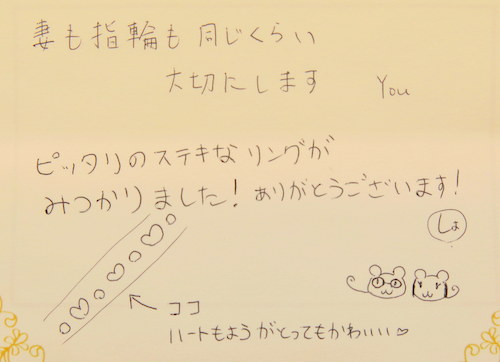 妻も指輪も同じくらい
大切にします
You
ピッタリのステキなリングが
みつかりました！ありがとうございます！
しょ
ココ
ハートもようがとってもかわいい♡